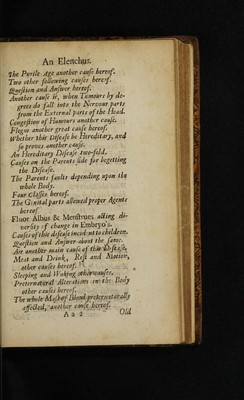 An Elenchus.
The Purile Age another cause hereof.
Two other following causes hereof.
Question and Answer hereof.
Another cause is, when Tumours by de-
grees do fall into the Nervous parts
from the External parts of the Head.
Congestion of Humours another cause.
Flegm another great cause hereof.
Whether this Disease be Hireditary, and
so proves another cause.
An Hereditary Disease two-fold.
Causes on the Parents side for begetting
the Disease.
The Parents faults depending upon the
whole Body.
Four Classes hereof.
The Genital parts allowed proper Agents
hereof.
Fluor Albus & Menstrues acting di-
versity of change in Embryo's.
Causes of this disease incident to children.
Question and Answer about the same.
Air another main cause of this Disease.
Meat and Drink, Rest and Motion,
other causes hereof.
Sleeping and Waking other causes.
Preternatural Alterations in the Body
other causes hereof.
The whole Mass of Blood preternaturally
affected, another cause hereof.
A a 2
Old